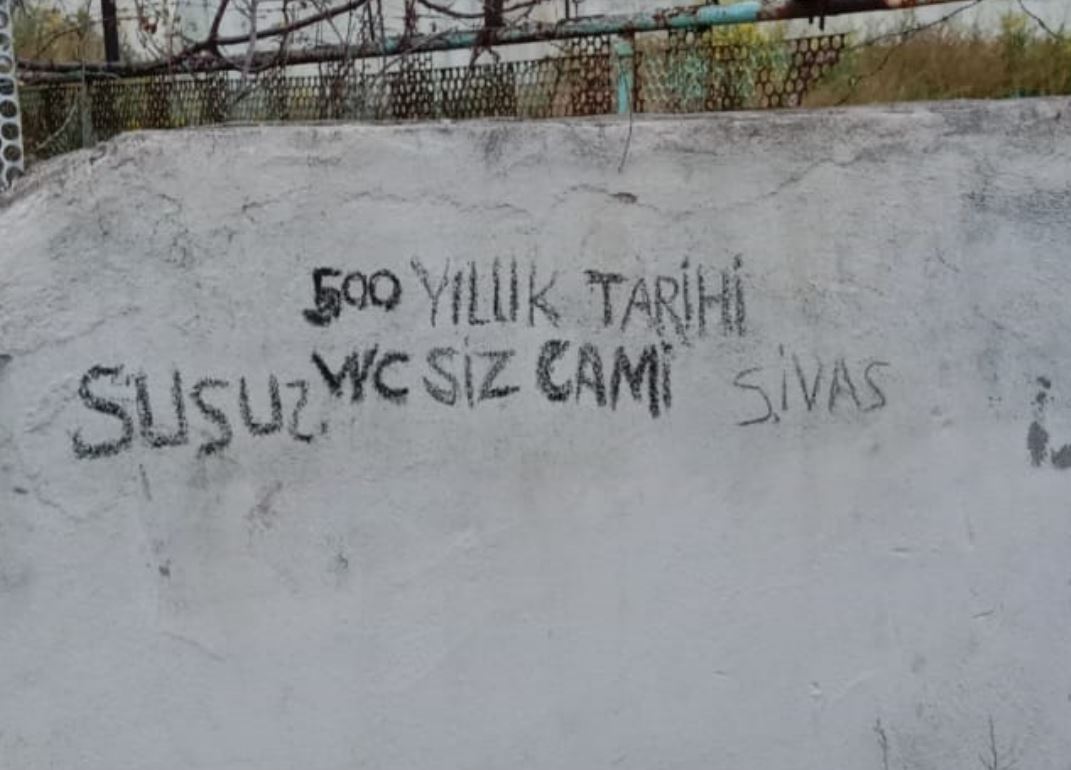 500 YILLIK TARİHİ
SUSUZ WC SİZ CAMİ SİVAS